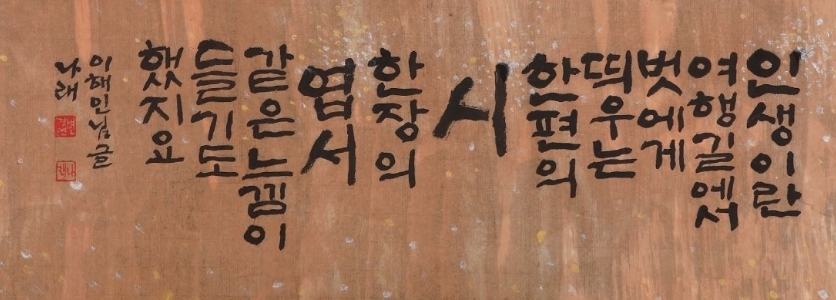 인생이란
여행길에서
벗에게
띄우는
한편의
시
한장의
엽서
같은느낌이
들기도
했지요
이해인님글
나래